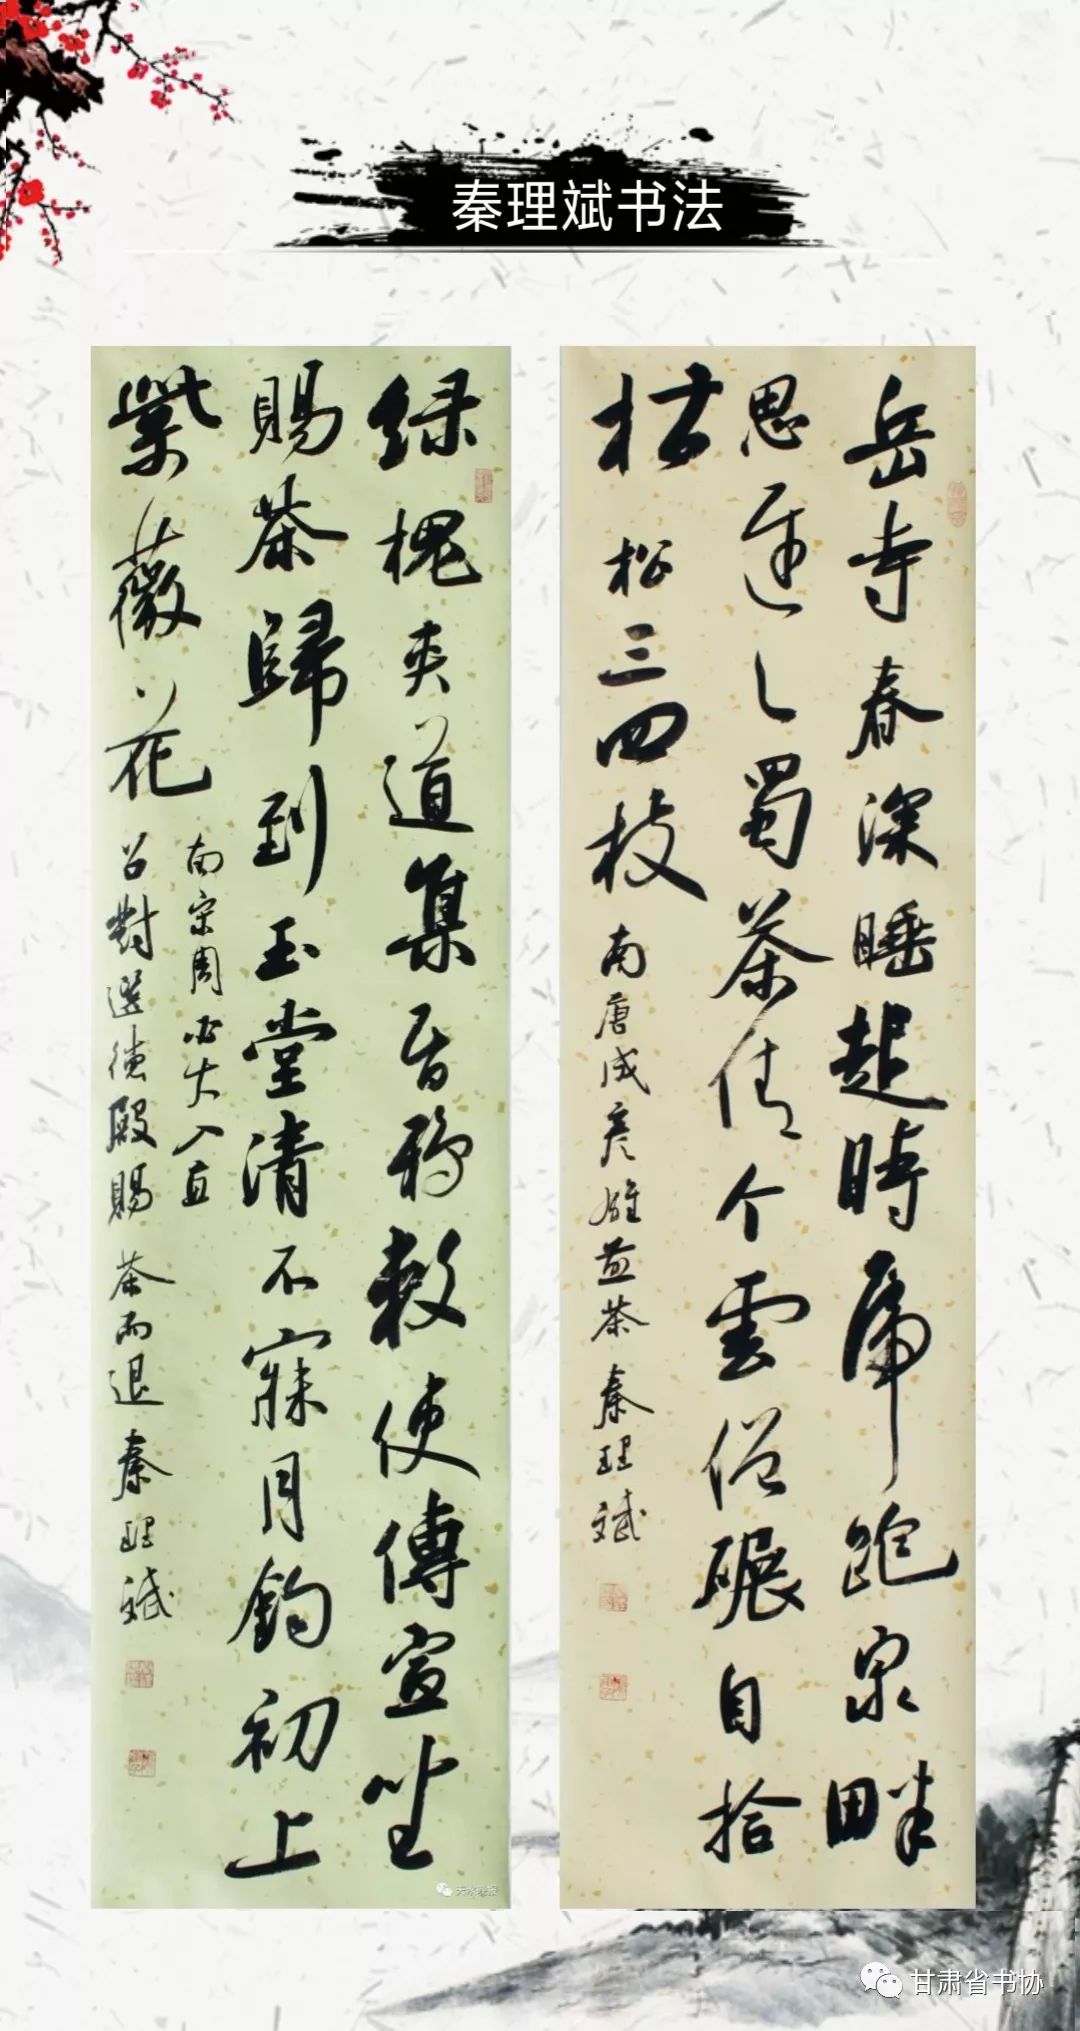 秦理斌书法
岳寺春深睡起時虎跑泉畔
思遲〻蜀茶倩个雲僧碾自拾
枯松三四枝 南唐成彦雄煎茶 秦理斌
緑槐夾道集昏鴉敕使傳宣坐
賜茶歸到玉堂清不寐月鈎初上
紫薇花
南宋周必大入直
召對選德殿賜茶而退 秦理斌
天水晚报
甘肃省书协